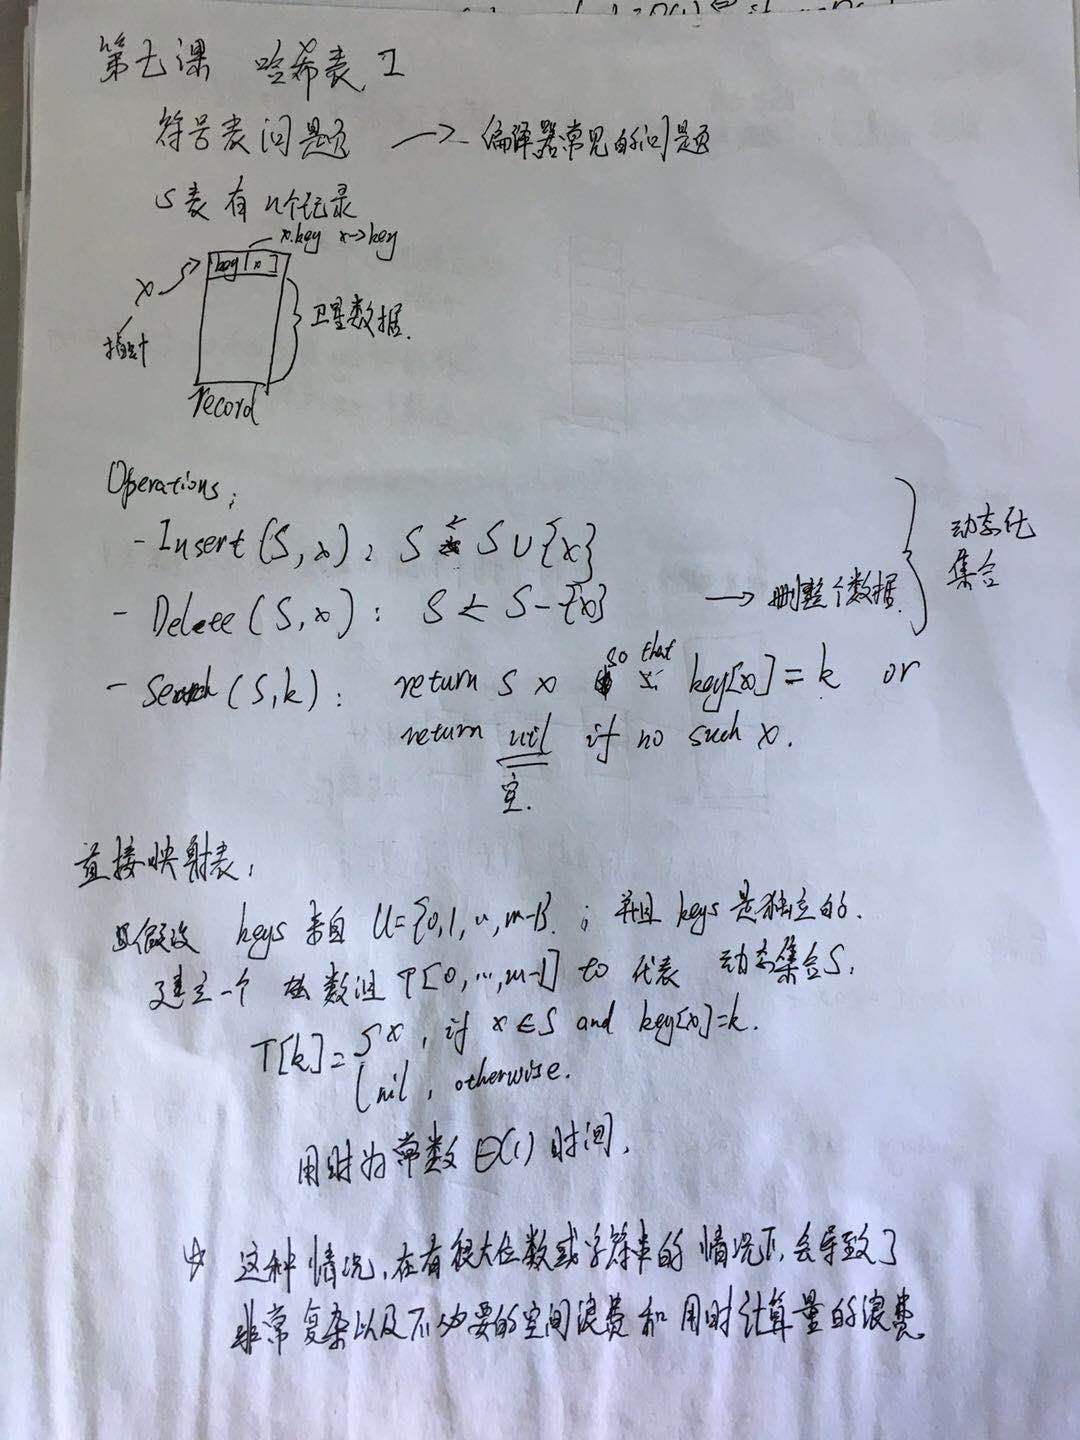 第七课 哈希表 I
符号表问题 → 编译器常见的问题
S表 有 n个记录
x.key x→key
key[x]
x
指针
卫星数据.
record
Operations:
- Insert(S,x): S ← S∪{x}
- Delete(S,x): S ← S-{x} → 删整个数据.
动态化
集合
- Search(S,k): return S x so that key[x]=k or
return nil if no such x.
空.
直接映射表:
假设 keys 来自 U={0,1,..,m-1}. ; 并且 keys 是独立的.
建立一个 数组 T[0,...,m-1] to 代表 动态集合S.
T[k]={ x, if x∈S and key[x]=k.
nil, otherwise.
用时为常数 Θ(1) 时间.
这种情况,在有很大位数或字符串的情况下,会导致了
非常复杂以及不必要的空间浪费和用时计算量的浪费.